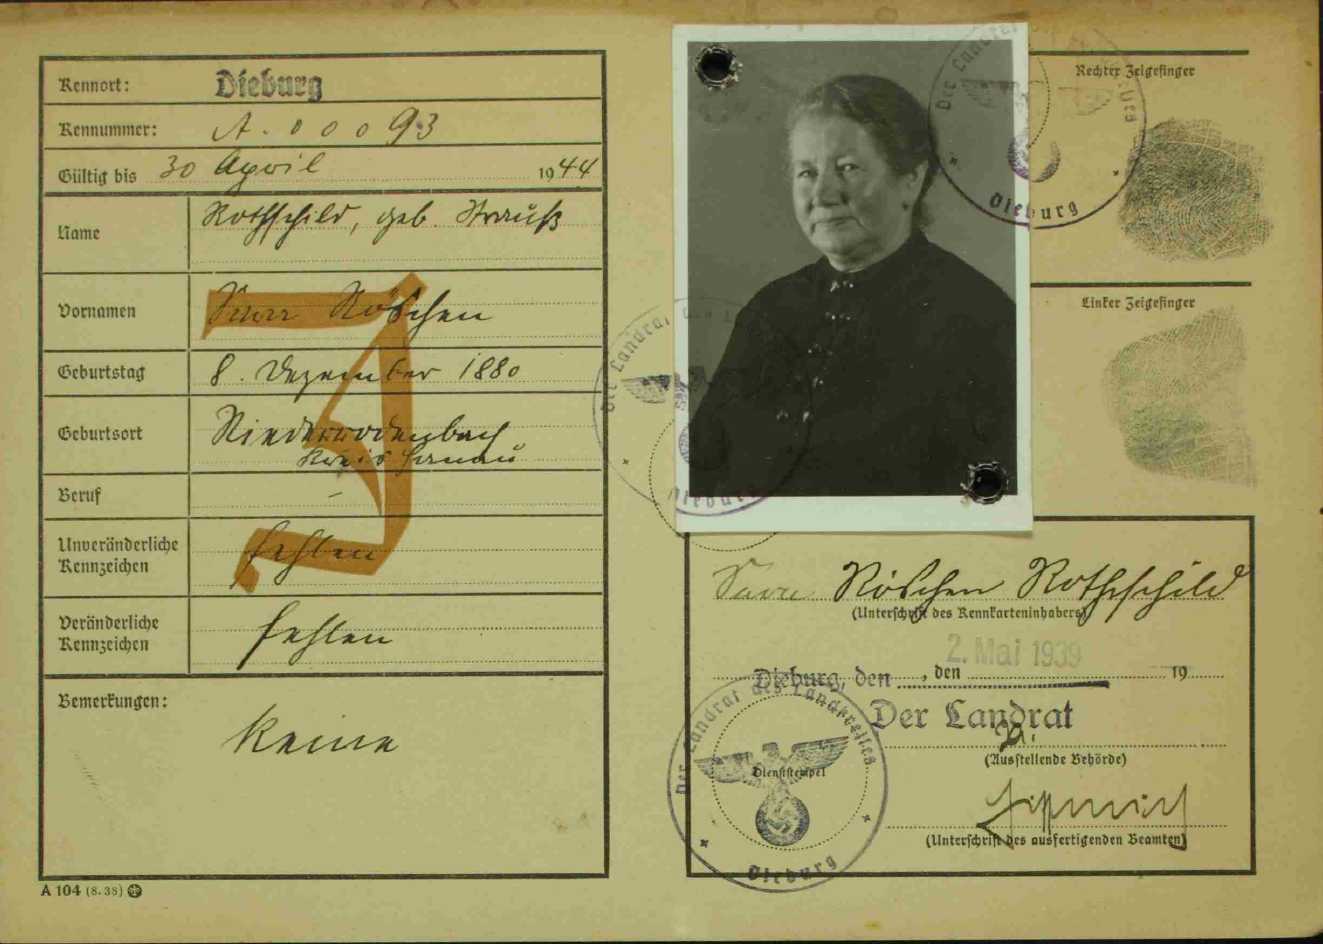 Kennort: Dieburg
Kennummer: A. 00093
Gültig bis 30 April 1944
Name Rothschild, geb. Strauß
Vornamen Sara Röschen
Geburtstag 8. Dezember 1880
Geburtsort Niederrodenbach
Kreis Hanau
Beruf –
Unveränderliche
Kennzeichen fehlen
Veränderliche
Kennzeichen fehlen
Bemerkungen:
Keine
J
A 104 (8. 38)
Rechter Zeigefinger
Der Landrat des
Dieburg
Linker Zeigefinger
Der Landrat des
Dieburg
Sara Röschen Rothschild
(Unterschrift des Kennkarteninhabers)
2. Mai 1939
Dieburg, den , den 19
Der Landrat
(Ausstellende Behörde)
Der Landrat des Landkreises
Dienststempel
Dieburg
(Unterschrift des ausfertigenden Beamten)